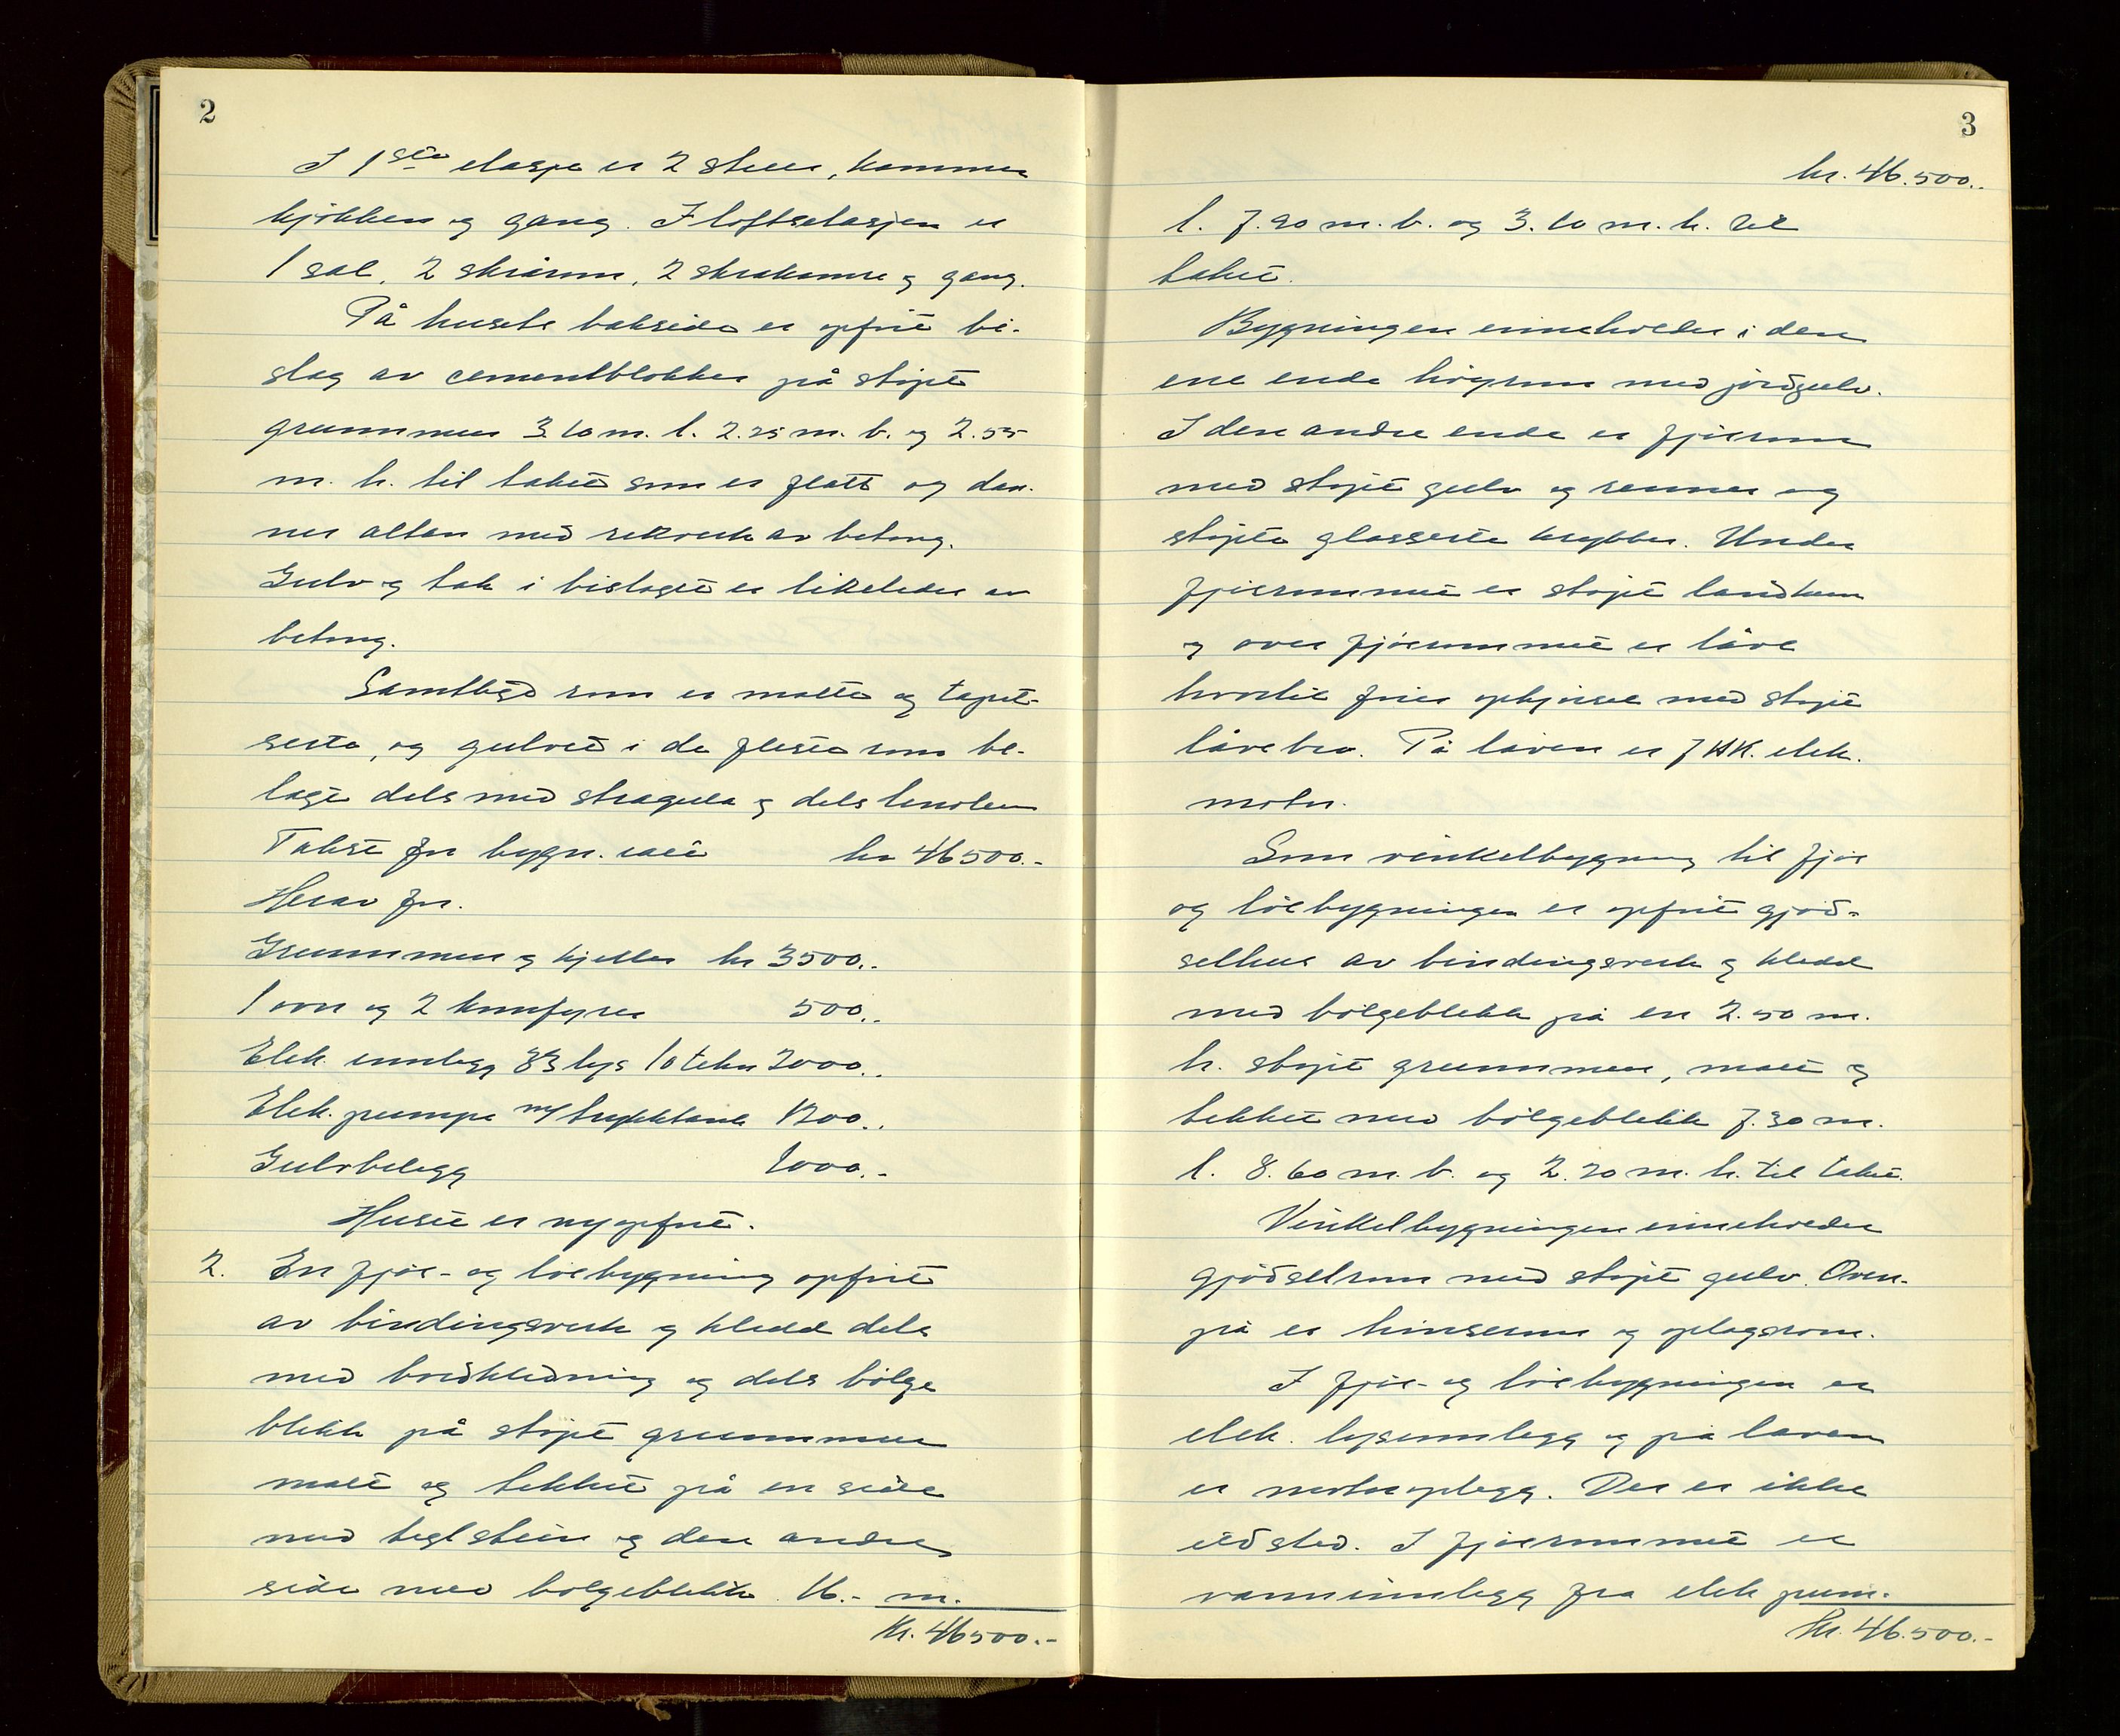 2
I 1ste etasje er 2 stuer, kammer
kjøkken og gang. I loftsetasjen er
1 sal, 2 skrårum, 2 skrakamre og gang.
På husets bakside er opført bi-
slag av cementblokker på støpt
grunnmur 3.10 m. l. 2.25 m. b. og 2.55
m. h. til taket som er flatt og dan-
ner altan med rekverk av betong.
Gulv og tak i bislaget er likeledes av
betong.
Samtlige rom er malte og tapet-
serte, og gulvet i de fleste rom be-
lagt dels med stragula og dels linoleum
Takst for bygn. ialt kr 46500.-
Herav for.
Grunnmur og kjeller kr 3500..
1 ovn og 2 komfyrer 500..
Elek. innlegg 33 lys 10 tekn 2000..
Elek. pumpe m/ trykktank 1200..
Gulvbelegg 1000.-
Huset er nyopført.
2. En fjøs- og løebygning opført
av bindingsverk og kledd dels
med bordkledning og dels bølge
blikk på støpt grunnmur
malt og tekket på en side
med teglstein og den andre
side med bølgeblikk. 16.- m.
Kr. 46500.-
3
kr. 46.500..
l. 7.20 m. b. og 3.10 m. h. til
taket.
Bygningen inneholder i den
ene ende høyrum med jordgulv.
I den andre ende er fjøsrum
med støpt gulv og renner og
støpte glasserte krybber. Under
fjøsrummet er støpt landkum
og over fjøsrummet er låve
hvortil fører opkjørsel med støpt
låvebro. På låven er 7 HK. elek.
motor.
Som vinkelbygning til fjøs
og løebygningen er opført gjød-
selhus av bindingsverk og kledd
med bølgeblikk på en 2.50 m.
h. støpt grunnmur, malt og
tekket med bølgeblikk 7.30 m.
l. 8.60 m. b. og 2.20 m. h. til taket.
Vinkelbygningen inneholder
gjødselrum med støpt gulv. Oven-
på er hønserum og oplagsrom.
I fjøs- og løebygningen er
elek. lysinnlegg og på laven
er motoroplegg. Der er ikke
ildsted. I fjøsrummet er
vanninnlegg fra elek pum-
Kr. 46.500.-